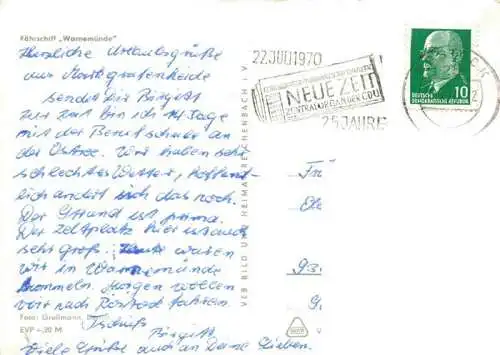 Fährschiff „Warnemünde"
Herzliche Urlaubsgrüße
aus Markgrafenheide
sendet Dir Birgitt
zur Zeit bin ich 14 Tage
mit der Berufsschule an
der Ostsee. Wir haben sehr
schlechtes Wetter, hoffent-
lich ändert sich das noch.
Der Strand ist prima.
Der Zeltplatz hier ist auch
sehr groß. Heute waren
wir in Warnemünde
bummeln. Morgen wollen
wir nach Rostock fahren.
Foto: Großmann,
Tschüß
EVP -,20 M
Birgitt
Viele Grüße auch an Deine Lieben.
VEB BILD UND HEIMAT REICHENBACH I. V.
22.JULI 1970
NEUE ZEIT
ZENTRALORGAN DER CDU
25 JAHRE
10
DEUTSCHE
DEMOKRATISCHE REPUBLIK